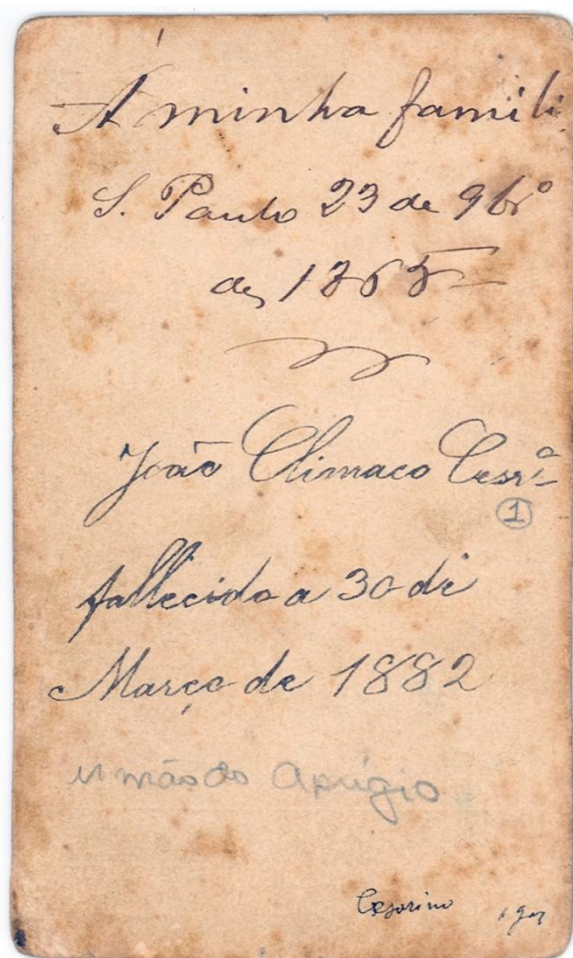 Á minha famili
S. Paulo 23 de 9brº
de 1865
João Climaco Cesrº
①
fallecido a 30 de
Março de 1882
irmão do Apúgio
Cesarino